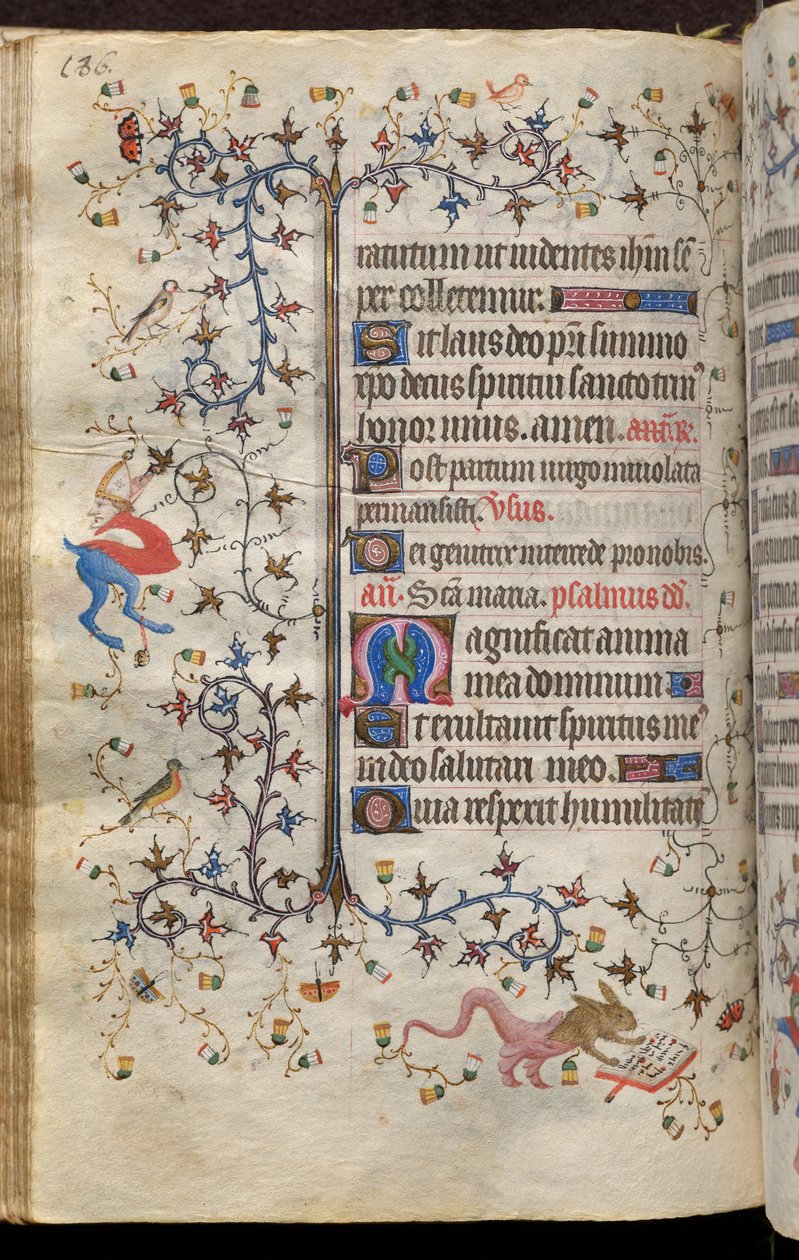 186.
ratutum ut uidentes ihm̄ sē
per colletemur.
Sit laus deo pr̄i summo
xpo decus spiritui sancto trin⁹
honor unus. amen. ant̄. R̄.
Post partum uirgo inuiolata
permansisti. v̄sus.
Dei genitrix intercede pro nobis.
an̄. Sc̄a maria. psalmus dd̄.
Magnificat anima
mea dominum.
Et exultauit spiritus me⁹
in deo salutari meo.
Quia respexit humilitatē